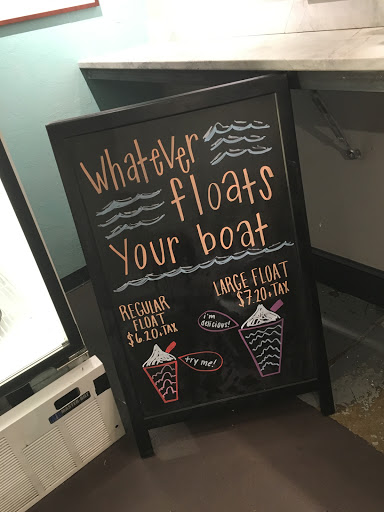 Whatever
floats
your boat
REGULAR
FLOAT
$6.20+TAX
LARGE FLOAT
$7.20+TAX
i'm
delicious!
try me!